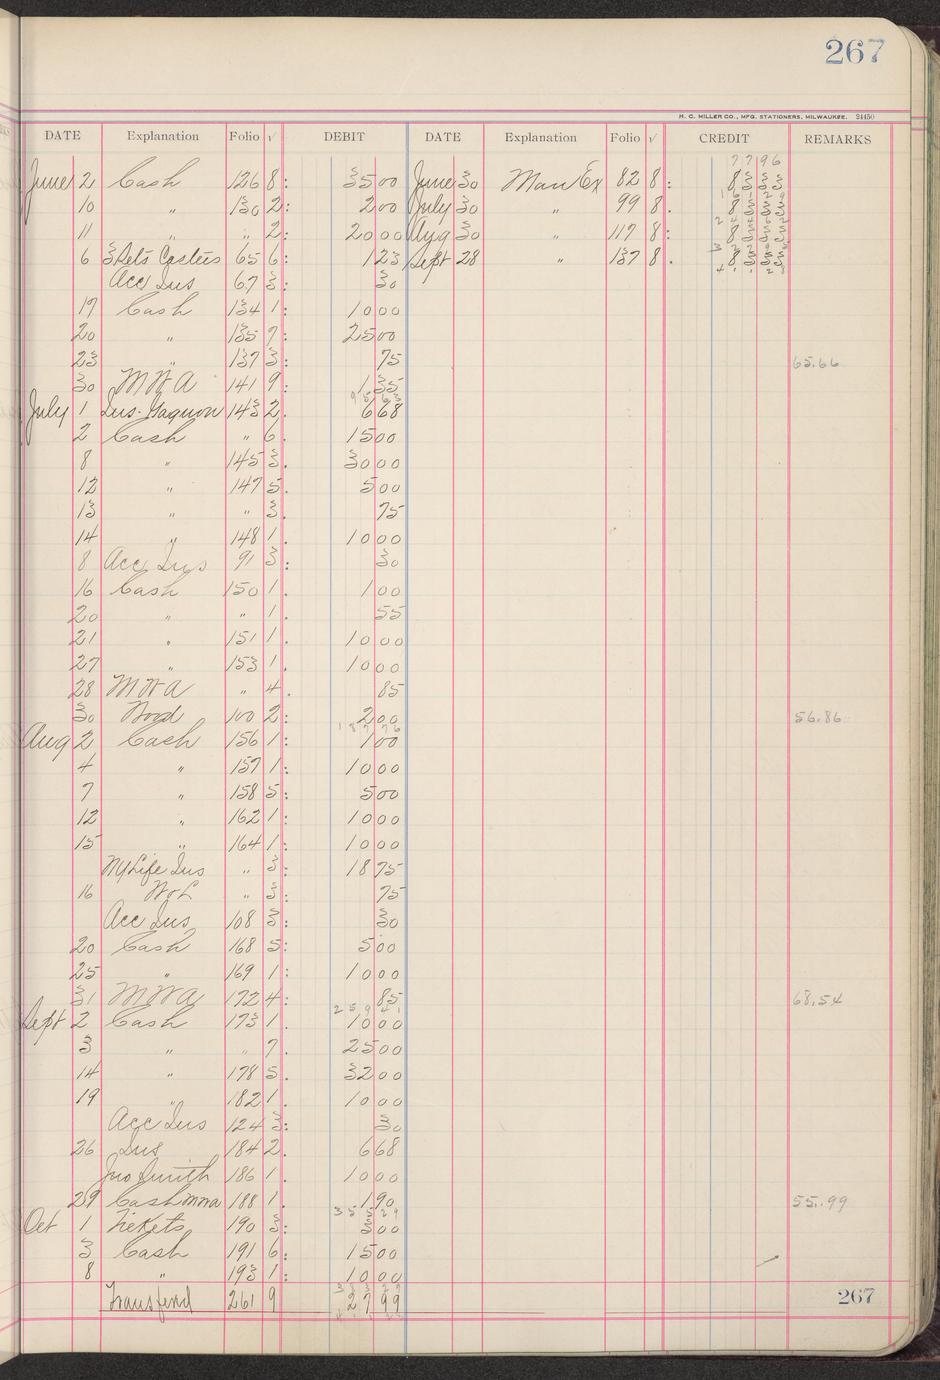 267
H. C. MILLER CO., MFG. STATIONERS, MILWAUKEE. 24450
DATE Explanation Folio √ DEBIT DATE Explanation Folio √ CREDIT REMARKS
7796
June 2 Cash 126 8: 3500 June 30 Man Ex 82 8: 8333
10 " 130 2: 200 July 30 " 99 8.
11 " " 2: 2000 Aug 30 " 117 8:
6 3 Sets Casters 65 6: 123 Sept 28 " 137 8.
Acc Ins 67 3: 30
17 Cash 134 1: 1000
20 " 135 7: 2500
23 " 137 3: 75 65.66
30 MWA 141 9: 135
July 1 Ins. Gagnon 143 2: 668
2 Cash " 6. 1500
8 " 145 3. 3000
12 " 147 5. 500
13 " " 3. 75
14 " 148 1. 1000
8 Acc Ins 91 3: 30
16 Cash 150 1. 100
20 " " 1. 55
21 " 151 1. 1000
27 " 153 1. 1000
28 MWA " 4. 85
30 Wood 100 2: 200 56.86
18776
Aug 2 Cash 156 1: 100
4 " 157 1: 1000
7 " 158 5: 500
12 " 162 1: 1000
15 " 164 1: 1000
NY Life Ins " 3: 1875
16 WOL " 3: 75
Acc Ins 108 3: 30
20 Cash 168 5: 500
25 " 169 1: 1000
31 MWA 172 4: 85 68.54
25941
Sept 2 Cash 173 1. 1000
3 " " 7. 2500
14 " 178 5. 3200
19 " 182 1. 1000
Acc Ins 124 3: 30
26 Ins 184 2. 668
Jno Smith 186 1. 1000
29 Cash MWA 188 1. 190 55.99
35529
Oct 1 Tickets 190 3: 300
3 Cash 191 6: 1500
8 " 193 1: 1000
38329
Transferd 261 9 2799 267